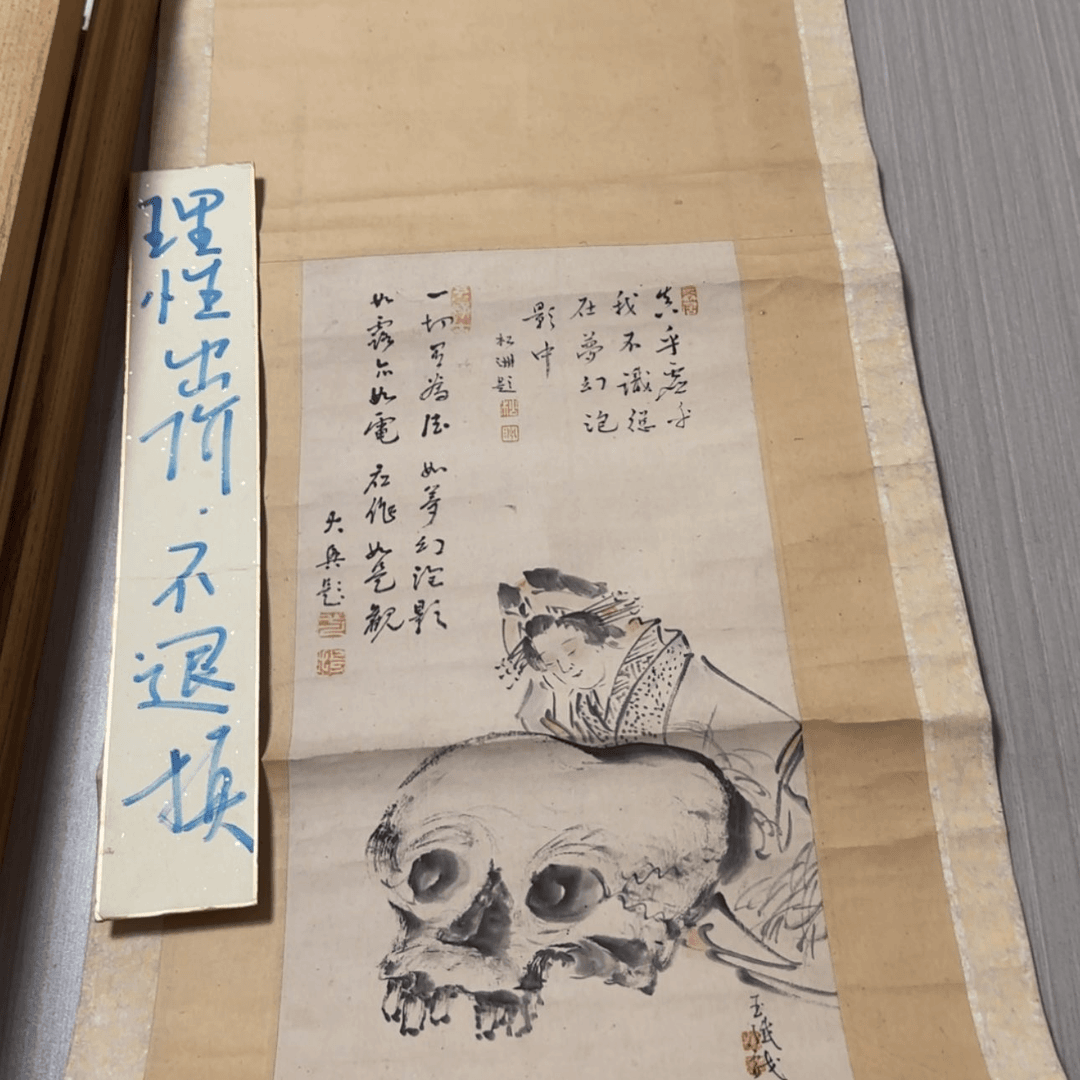 理性出价·不退换
真乎虛乎
我不識總
在夢幻泡
影中
松洲題
一切有為法 如夢幻泡影
如露亦如電 應作如是觀
題
玉